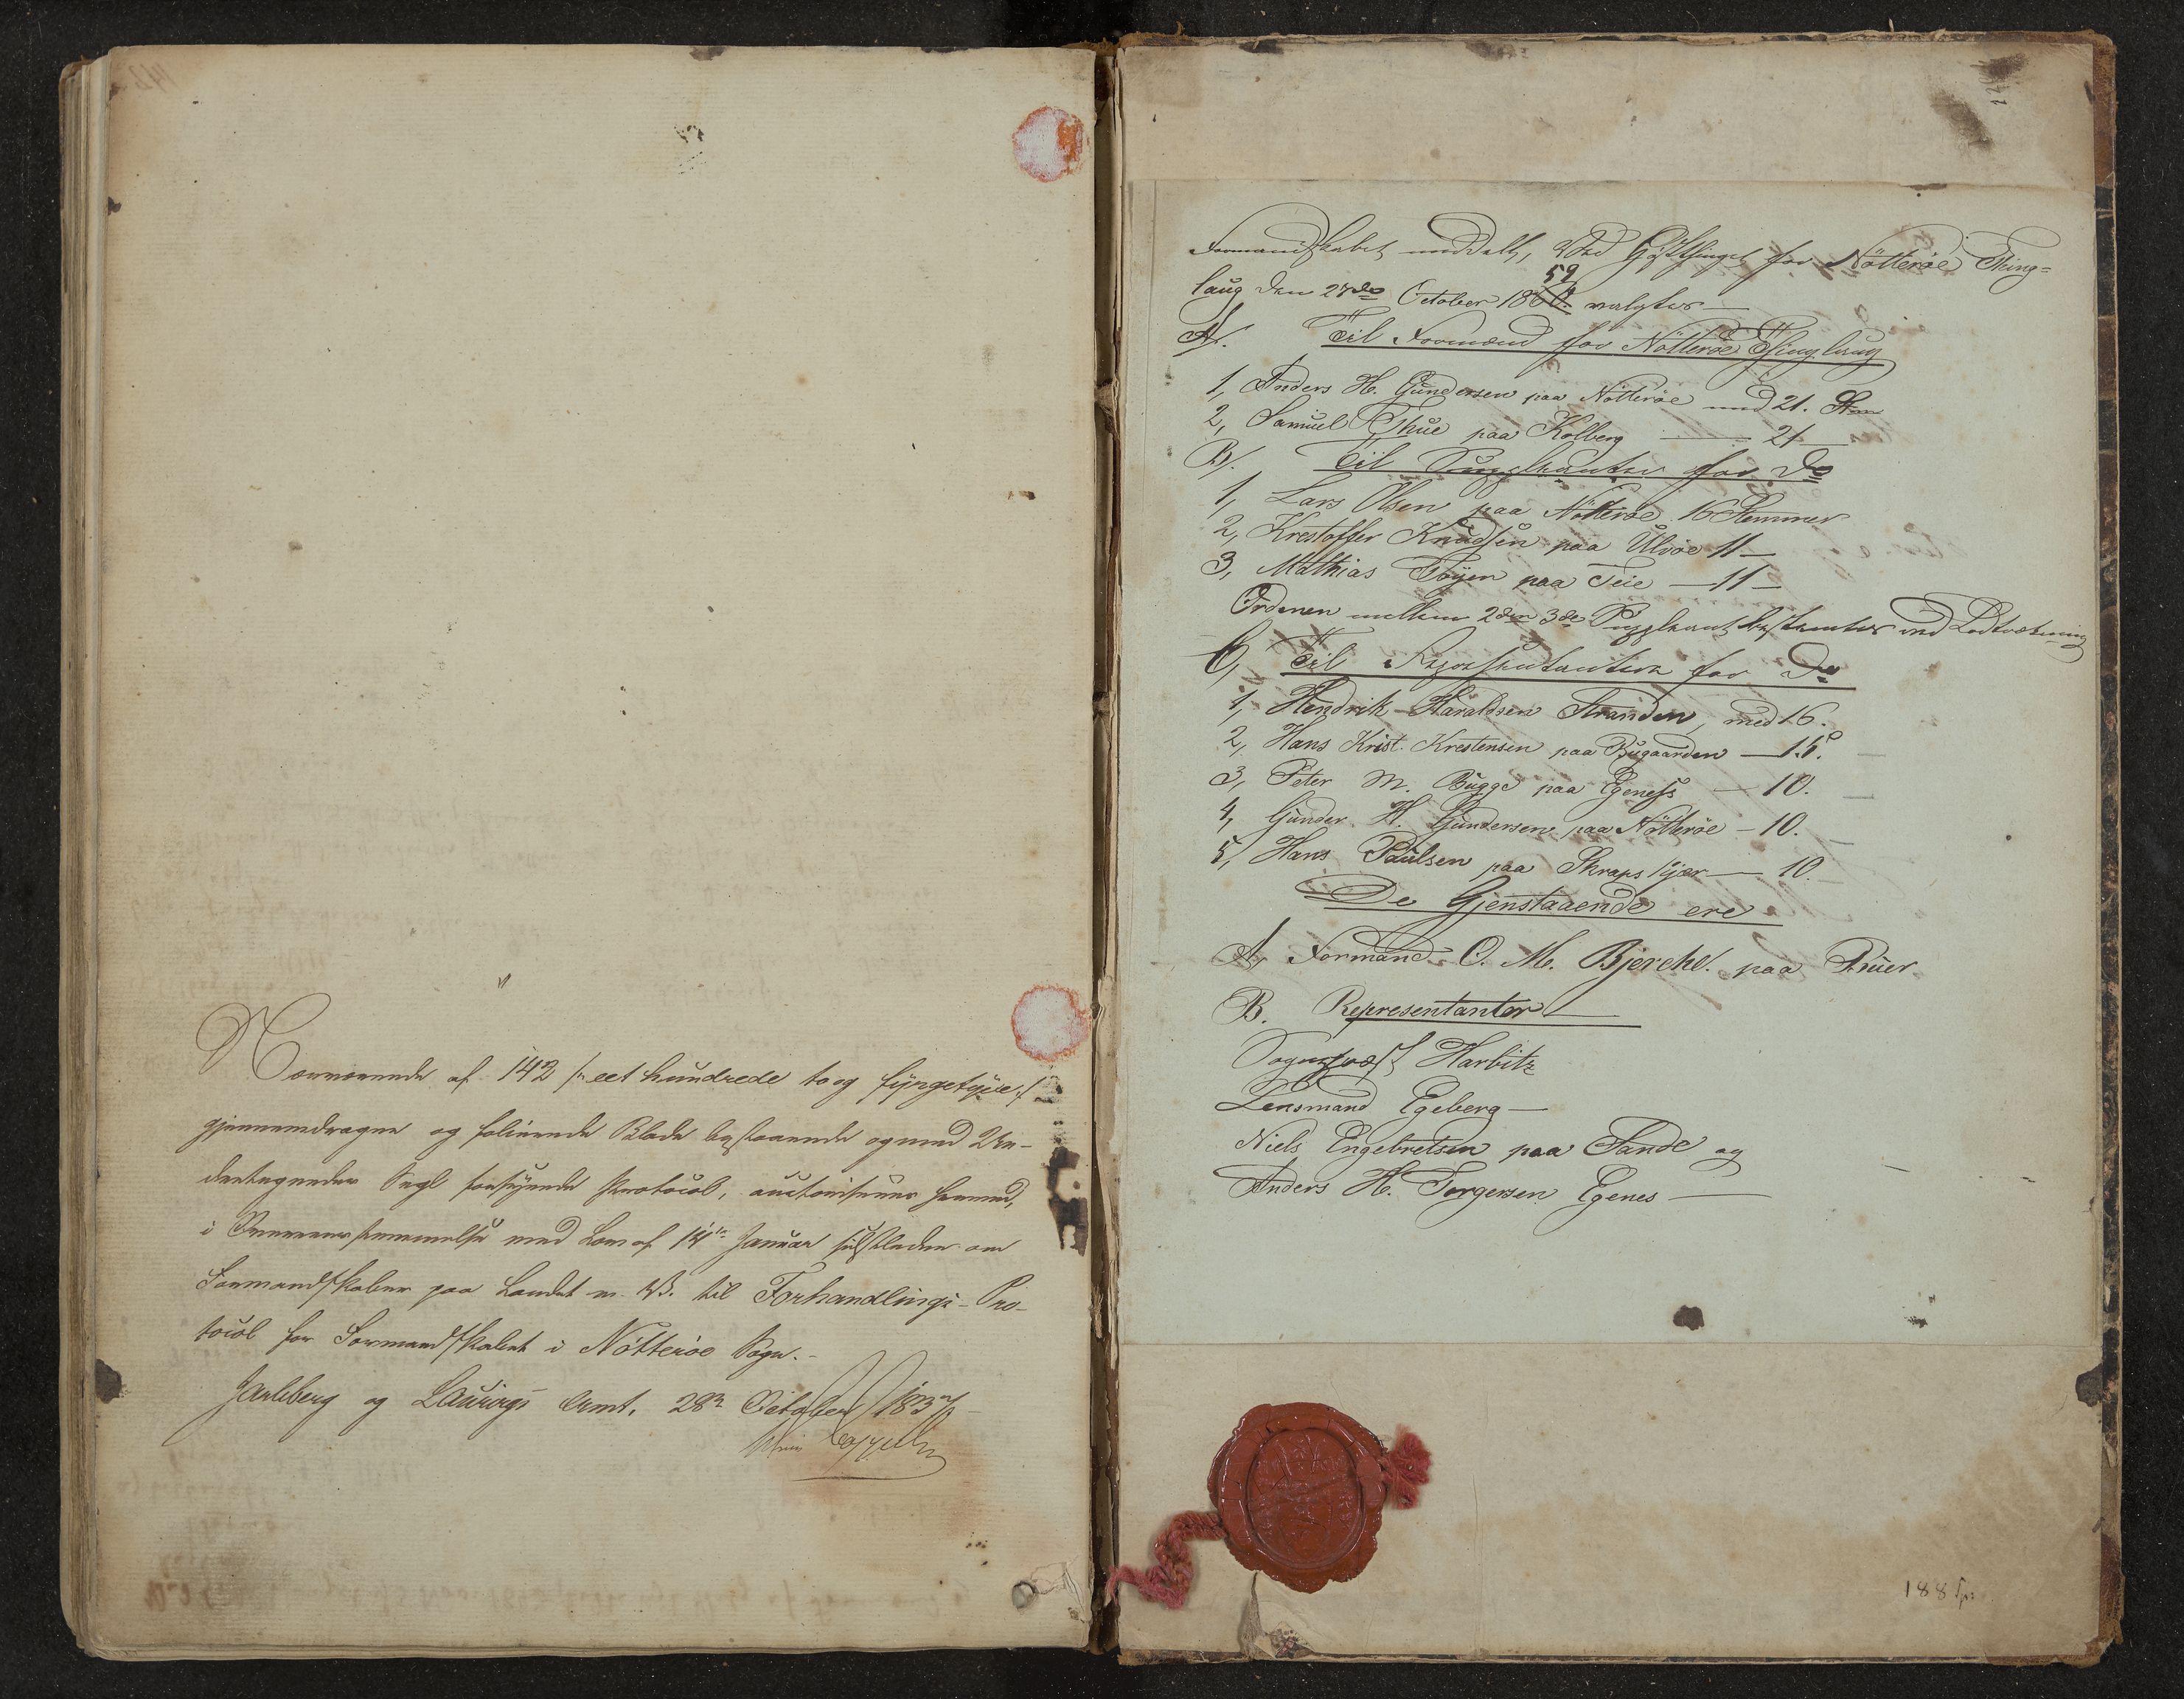 Nærværende af 142 /: eet hundrede to og fyrgetyve :/
gjennemdragne og folierede Blade bestaaende og med Un-
dertegnedes Segl forsynede Protocol, auctoriseres herved,
i Overensstemmelse med Lov af 14de Januar sidstleden om
Formandskaber paa Landet m. V. til Forhandlings-Pro-
tocol for Formandskabet i Nötteröe Sogn.-
Jarlsberg og Laurvigs Amt, 28de October 1837
Cappelen
Formandskabet meddelt, Ved Høstthinget for Nötteröe Thing=
59
laug den 27de October 1860. valgtes
A. Til Formænd for Nötteröe Thinglaug
1, Anders H. Gundersen paa Nötteröe med 21. Stm
2, Samuel Thue paa Kolberg — 21 —
B. Til Suppleanter for Do
1, Lars Olsen paa Nötteröe 16 Stemmer
2, Krestoffer Knudsen paa Ulvöe 11 —
3, Mathias Föyen paa Teie — 11 —
Ordenen mellem 2den 3de Suppleant bestemtes ved Lodtrækning
C, Til Repræsentanter for Do
1, Hendrik Haraldsen Stranden, med 16.
2, Hans Krist. Krestensen paa Bugaarden — 15. —
3, Peter M. Bugge paa Egeness — 10. —
4, Gunder H. Gundersen paa Nötteröe — 10. —
5, Hans Paulsen paa Skrapskjær — 10. —
De Gjenstaaende ere
A, Formand O. M. Bjerche. paa Buer
B. Representanter
Sognepræst Harbitz
Lensmand Egeberg —
Niels Engebretsen paa Sande og
Anders H. Torgersen Egenes —
188